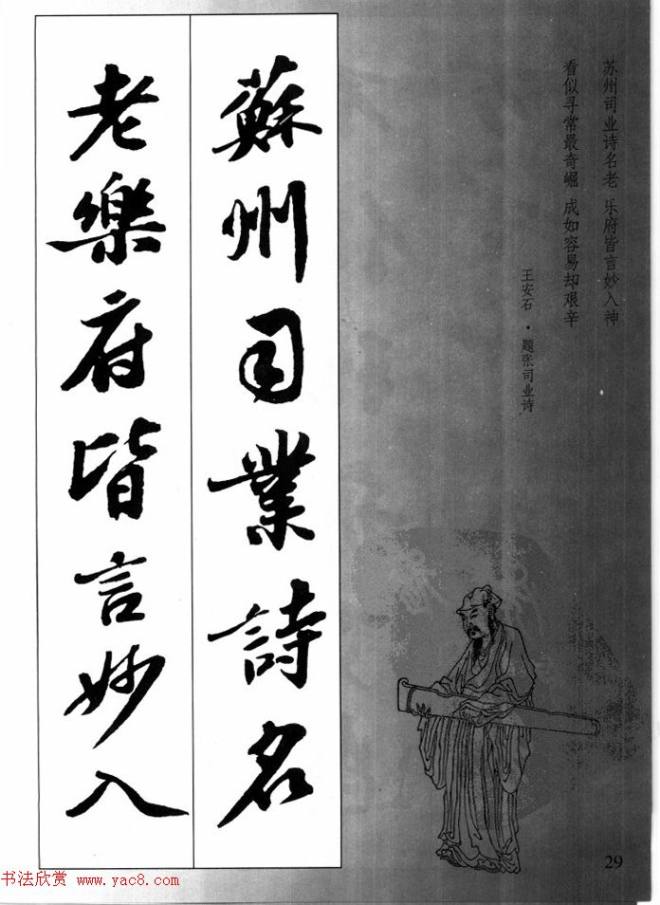 苏州司业诗名老 乐府皆言妙入神
看似寻常最奇崛 成如容易却艰辛
王安石·题张司业诗
蘇州司業詩名
老樂府皆言妙入
29
书法欣赏 www.yac8.com